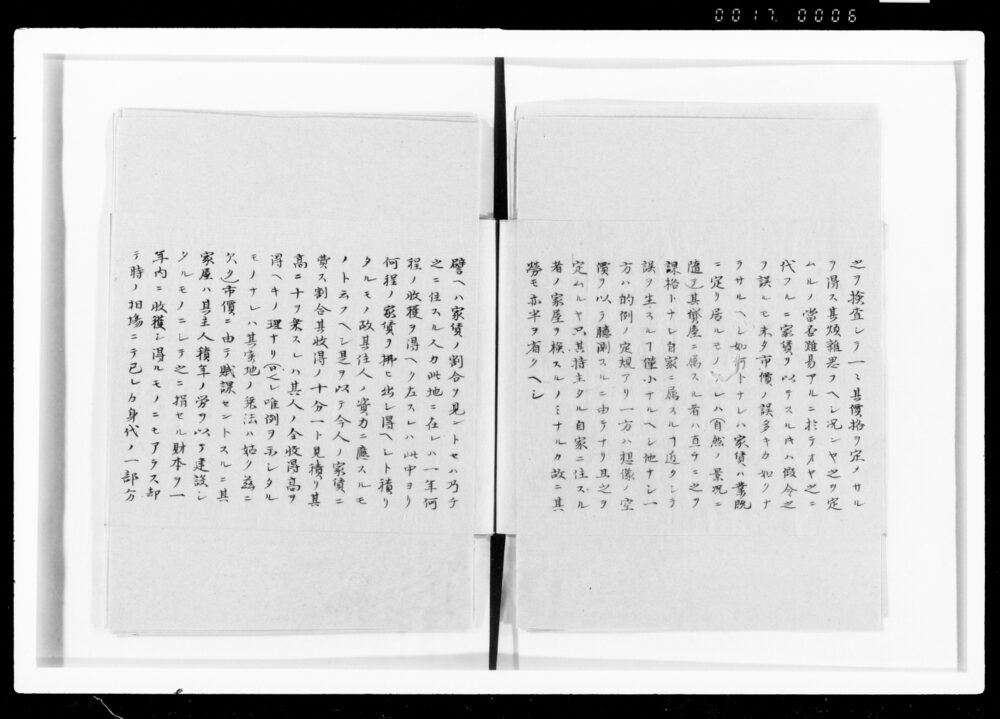 0017 0006
之ヲ検査シテ一々其價格ヲ定メサル
ヲ得ス其煩雜思フヘシ况ンヤ之ヲ定
ムルノ當否難易アルニ於テオヤ之ニ
代フルニ家賃ヲ以テスルトキハ假令之
ヲ誤ルモ未タ市價ノ誤多キカ如クナ
ラサルヘシ如何トナレハ家賃ハ業既
ニ定リ居ルモノ レハ自然ノ景况ニ
隨ヒ其齋屋ニ属スル者ハ直チニ之ヲ
課格トナシ自家ニ属スルヿ近クシテ
誤ヲ生スルヿ僅小ナルヘシ他ナシ一
方ハ的例ノ定規アリ一方ハ想像ノ空
價ヲ以テ臆測スルニ由テナリ且之ヲ
定ムルヤ只其持主タル自家ニ住スル
者ノ家屋ヲ検スルノミナルカ故ニ其
勞モ亦半ヲ省クヘシ
譬ヘハ家賃ノ割合ヲ見ントセハ乃チ
之ニ住スル人カ此地ニ在レハ一年何
程ノ收獲ヲ得ヘク左スレハ此中ヨリ
何程ノ家賃ヲ拂ヒ出シ得ヘシト積リ
タルモノ故其住人ノ資力ニ應スルモ
ノト云フヘシ是ヲ以テ今人ノ家賃ニ
費ス割合其收得ノ十分一ト見積リ其
高ニ十ヲ乗スレハ其人ノ全收得高ヲ
得ヘキノ理ナリ 但シ唯例ヲ示シタル
モノナレハ其実地ノ乗法ハ姑ク茲ニ
欠ク 市價ニ由テ賦課セントスルニ其
家屋ハ其主人積年ノ労ヲ以テ建設シ
タルモノニシテ之ニ捐セル財本ヲ一
年内ニ收獲シ得ルモノニモアラス却
テ時ノ相場ニテ己レカ身代ノ一部分